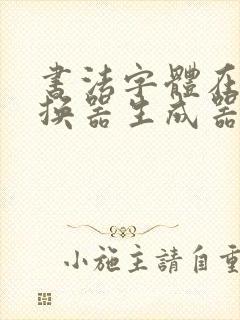 書法字體在
換器生成器
小施主請自重